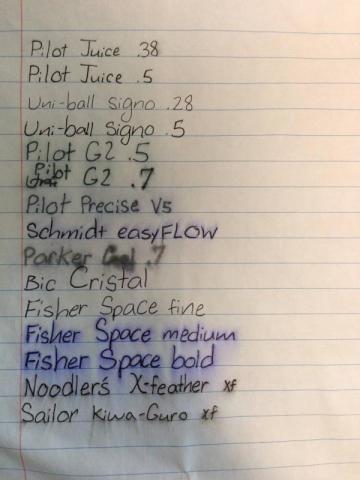 Pilot Juice .38
Pilot Juice .5
Uni-ball signo .28
Uni-ball signo .5
Pilot G2 .5
Pilot G2 .7
Pilot Precise V5
Schmidt easyFLOW
Parker Gel .7
Bic Cristal
Fisher Space fine
Fisher Space medium
Fisher Space bold
Noodler's X-feather xf
Sailor Kiwa-Guro xf